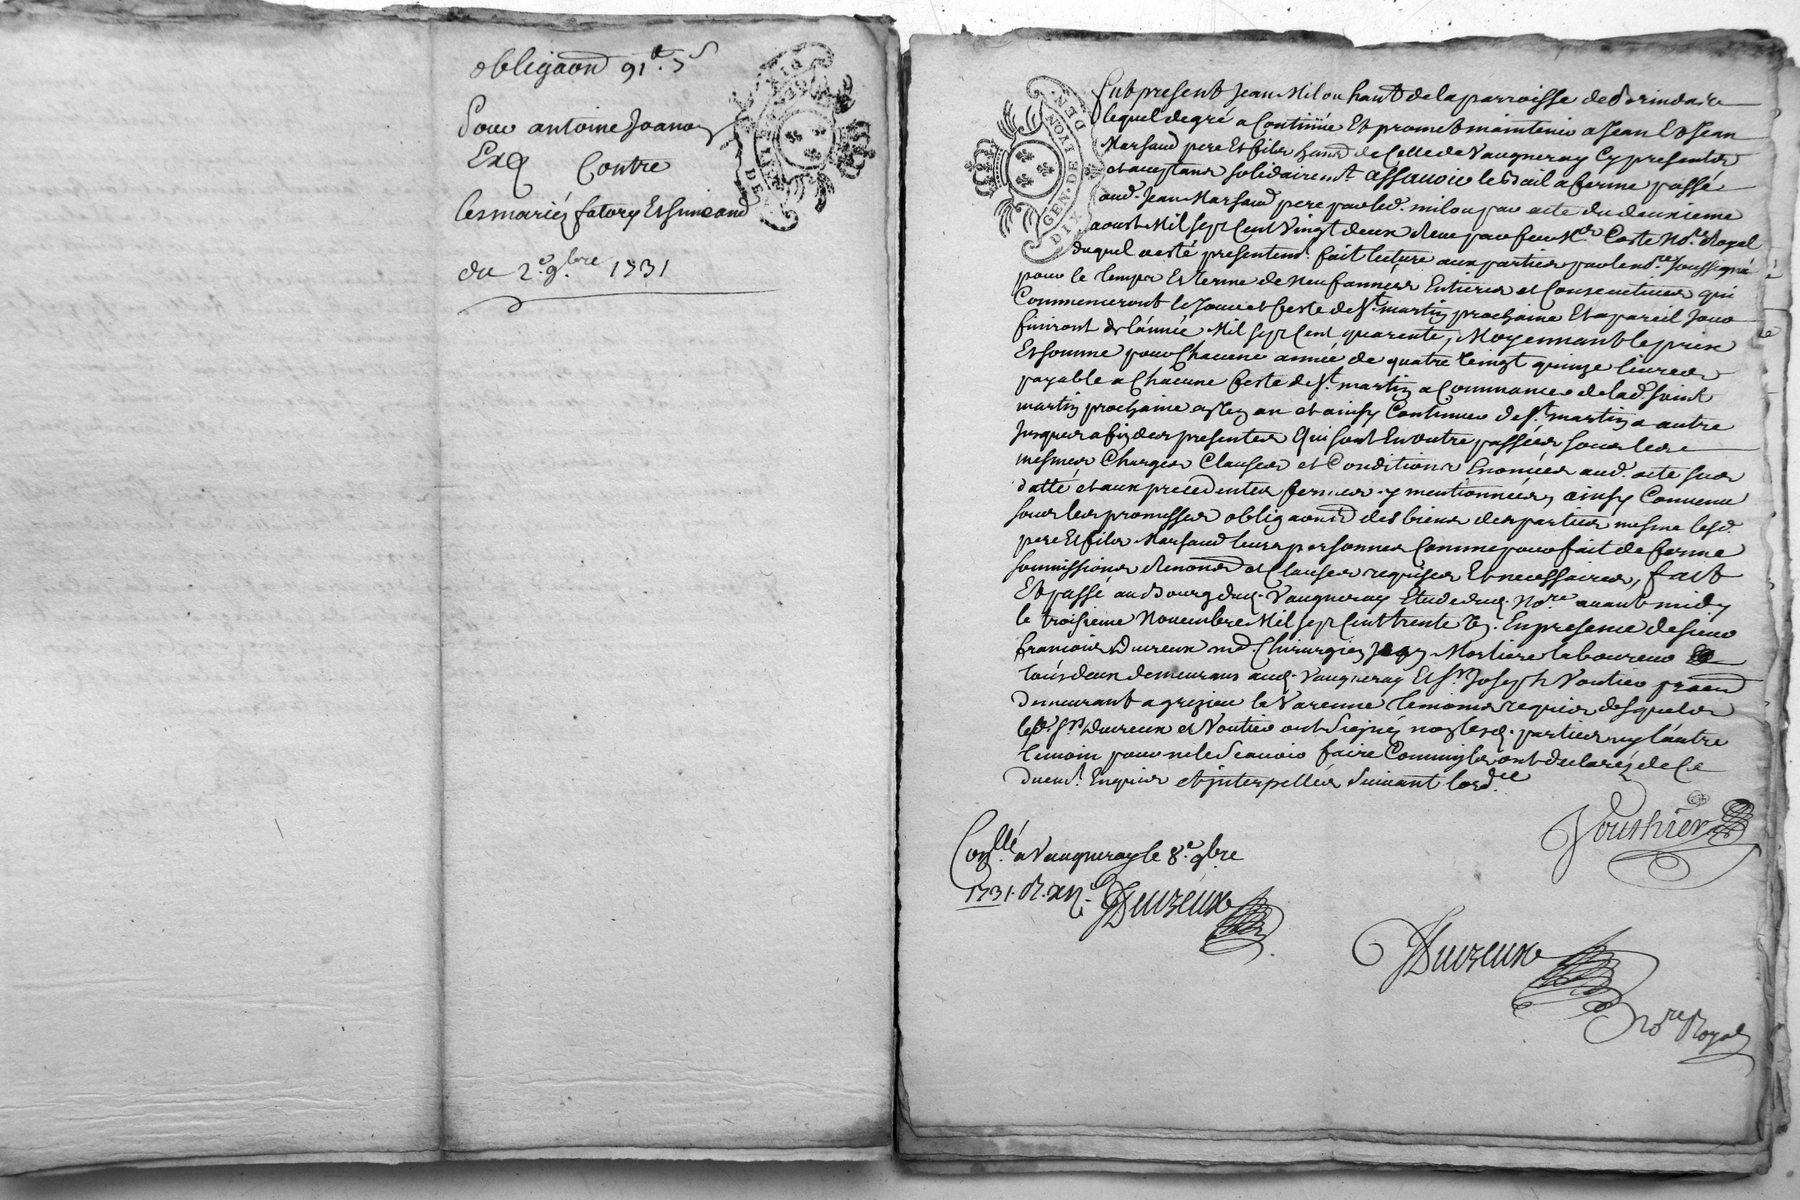 obligaon 91# 5s
Pour antoine Joanon
Exq Contre
les mariés fatory Et simeand
du 2e 9bre 1731
GEN. DE LYON
DIX DEN.
Fut present Jean Milou habt de la parroisse de Brindas
lequel de gré a Continüé Et promet maintenir a Jean Et Jean
Marsaud pere Et fils habts de Celle de Vaugneray Cy presents
et acceptans solidairemt assavoir le Bail a ferme passé
aud. Jean Marsaud pere par led. milou par acte du deuxieme
aoust Mil sept Cent Vingt deux Receu par feu Me Coste Nore Royal
duquel a esté presentemt fait lecture aux parties par le nore soussigné
pour le temps Et terme de neuf années Entieres et Consecutives qui
Commenceront le Jour et feste de St martin prochaine Et a pareil Jour
finiront de l'année Mil sept Cent quarente, Moyennant le prix
Et somme pour Chacune année de quatre Vingt quinze livres
payable a Chacune feste de St martin a Commancer de la d. saint
martin prochaine en un an et ainsy Continuer de St martin a autre
Jusques a fin des presentes Qui sont En outre passées sous les
mesmes Charges Clauses et Conditions Enoncées aud. acte sus
datté et aux precedentes fermes y mentionnées, ainsy Convenu
sous les promesses obligaons des biens des parties mesme lesd.
pere Et fils Marsaud leurs personnes Comme pour fait de ferme
soumissions Renonons et Clauses requises Et necessaires, fait
Et passé au Bourg dud. Vaugneray Etude dud. Nore avant midy
le troisieme Novembre Mil sept Cent trente un. En presence de sieur
francois Duvreux md. Chirurgien Jean Morliere laboureur
tous deux demeurans aud. Vaugneray Et sr Joseph Voutier praen
demeurant a grezieu le Varenne temoins requis desquels
lesd. srs Duvreux et Voutier ont signés non lesd. parties ny l'autre
temoin pour ne le Scavoir faire Comm'ils ont declarés de Ce
duemt Enquis et interpellés Suivant lordce
Vouthier
Conllé a Vaugneray le 8e 9bre
1731. R. xii s. Duvreux
Duvreux
Nore Royal